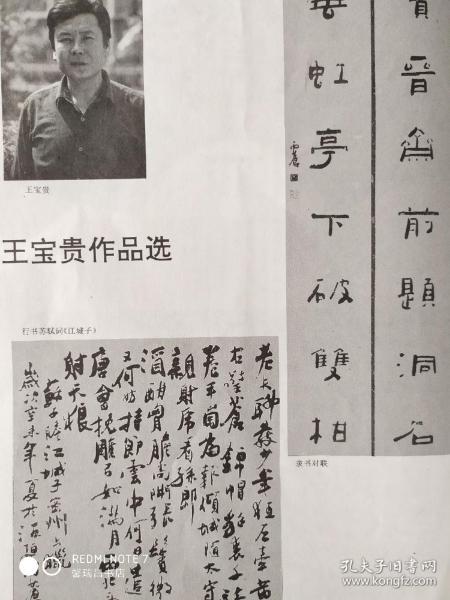 王宝贵
王宝贵作品选
行书苏轼词《江城子》
老夫聊发少年狂左牵黄
右擎苍锦帽貂裘千骑
卷平冈为报倾城随太守
亲射虎看孙郎
酒酣胸胆尚開张鬓微
又何妨持节雲中何日遣
唐會挽雕弓如满月西北
射天狼
蘇子瞻江城子密州出獵
歲次辛未年夏於
晋齋前題洞石
垂虹亭下破雙柑
隶书对联
REDMI NOTE 7
馨瑞召书店
孔夫子旧书网